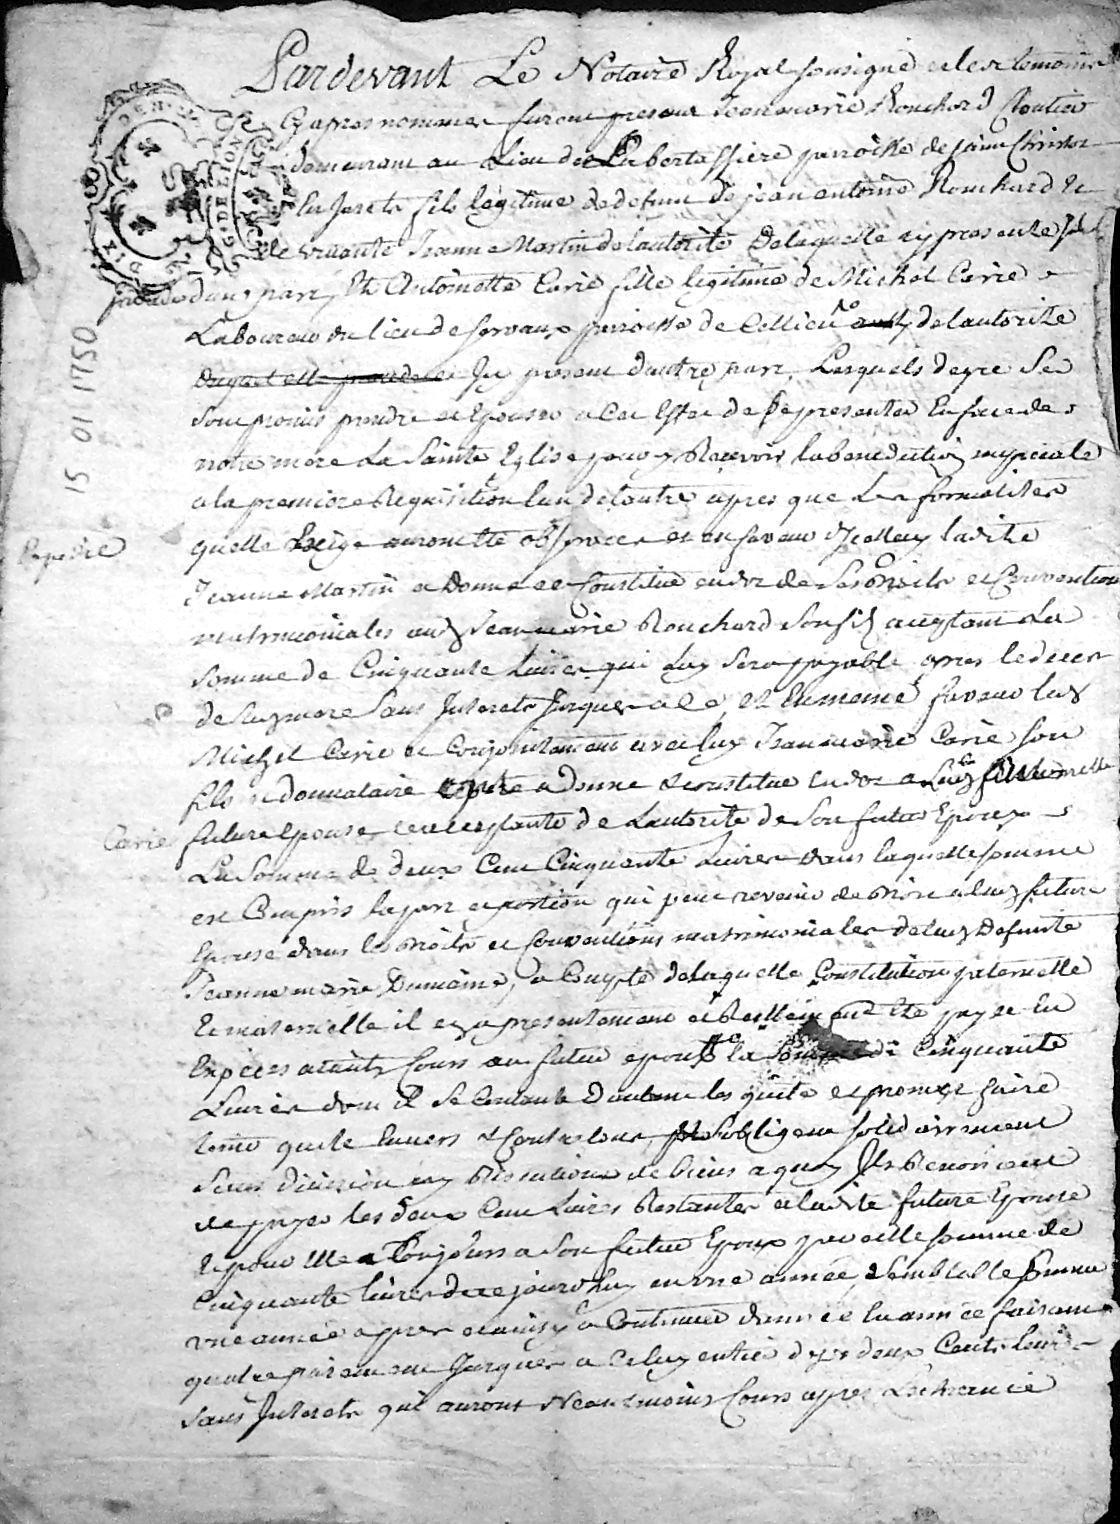 Pardevant Le Notaire Royal sousigné et les temoins
Cy apres nommes furent presens Jean marie Rouchard Routier
demeurant au Lieu de Libertassiere parroisse de saint Christo
en Jarets fils légitime de defunt de jean antoine Rouchard et
de vivante Jeanne Martin de lautorité de laquelle icy presente
procede dune part, Et Antoinette Carie fille legitime de Michel Carie
Laboureur du lieu de parroisse de Cellieu de lautorité
duquel elle procede Icy present dautre part, Lesquels de gre se
sont promis prendre et Epouser a Cet Effet de se presenter En face de
notre mere La Sainte Eglise pour y Recevoir la benediction nupciale
a la premiere Requisition lun de lautre apres que Les formalites
quelle Exige auront eté observées et en faveur dIcelluy ladite
Jeanne Martin a Donné et Constitué en dot de ses droits et Convention
matrimoniales aud Jean marie Rouchard son fils acceptant La
somme de Cinquante Livres qui Luy sera payable apres le deces
de sa mere Sans Interets Jusques a ce, Et En meme faveur led
Michel Carie et Conjointement avec luy Jean marie Carie son
fils et donnataire a donné et constitué en dot a Lad Antoinette
future Epouse acceptante de Lautorité de Son futur Epoux
La Somme de deux Cent Cinquante Livres dans laquelle somme
est Compris la part et portion qui peut revenir de droit a lad future
Epouse dans les droits et Conventions matrimoniales de lad Defunte
Jeanne marie Dumaine, a Compte de laquelle Constitution paternelle
Et maternelle il en a presentement et Reellement eté payé en
Especes ayants Cours au futur epoux la Somme de Cinquante
Livres dont il Se Contente dautant les quite et promet faire
tenir quite Envers et Contre tous, sobligent solidairement
Sans division ny discution de biens a quoy Ils Renoncent
de payer les deux Cent Livres Restantes a ladite future Epouse
Et pour Elle a Toujours a Son futur Epoux par celle somme de
Cinquante livres de ce jourdhuy en une année, Semblable Somme
une année apres et ainsy a Continuer danné en année faisant
quatre paiement Jusques a Celuy entier desd deux Cents livres
sans Interets qui auront Neantmoins Cours apres Lecheance
Expedié
Carie
15 01 1750
G. DE LION